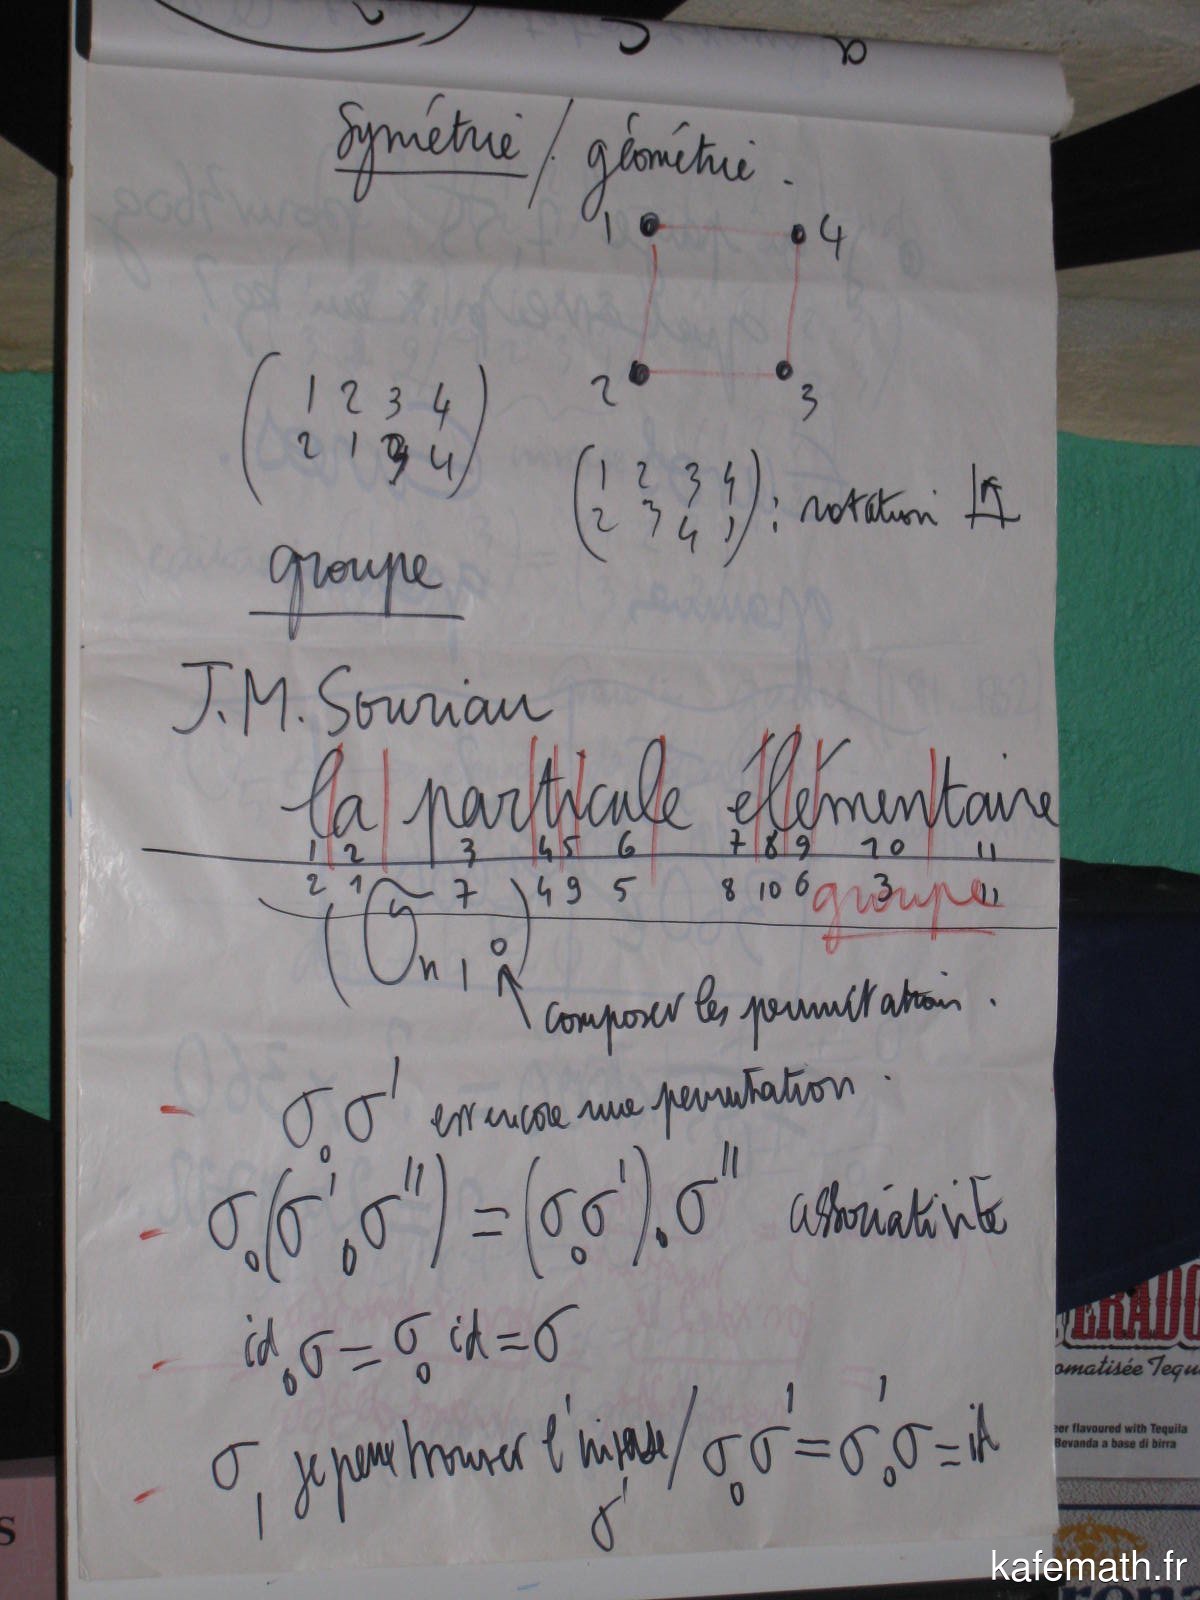 Symétrie / géométrie.
1 4
2 3
( 1 2 3 4 )
( 2 1 3 4 )
( 1 2 3 4 )
( 2 3 4 1 ) : rotation
groupe
J.M. Souriau
la particule élémentaire
1 2 3 4 5 6 7 8 9 10 11
2 1 7 4 9 5 8 10 6 3 11
groupe
(σn, ∘)
composer les permutations.
- σ∘σ' est encore une permutation.
- σ∘(σ'∘σ'') = (σ∘σ')∘σ'' associativité
- id∘σ = σ∘id = σ
- σ, je peux trouver l'inverse / σ∘σ' = σ'∘σ = id
σ'
ERADO
omatisée Tequ
eer flavoured with Tequila
Bevanda a base di birra
kafemath.fr